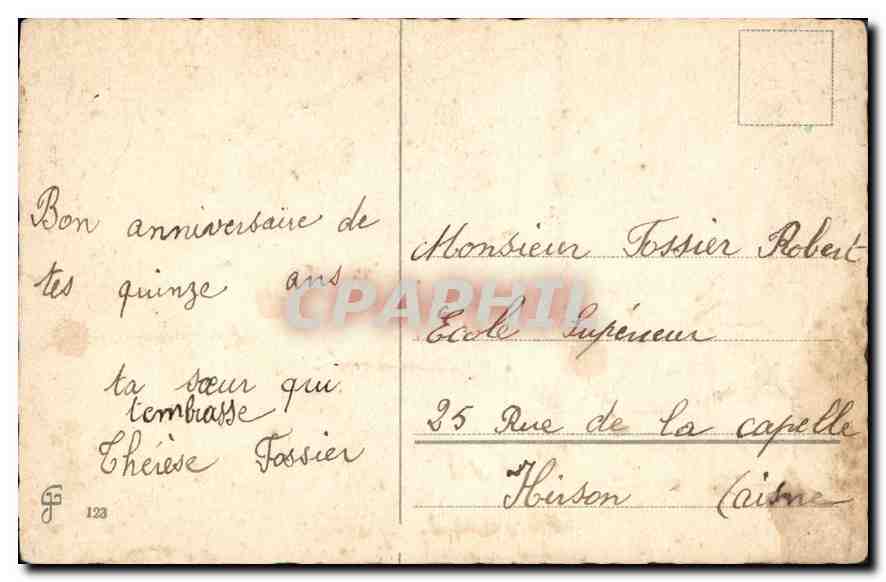 Bon anniversaire de
tes quinze ans
ta sœur qui
t'embrasse
Thérèse Fossier
123
Monsieur Fossier Robert
Ecole Supérieur
25 Rue de la capelle
Hirson (aisne
CPAPHIL